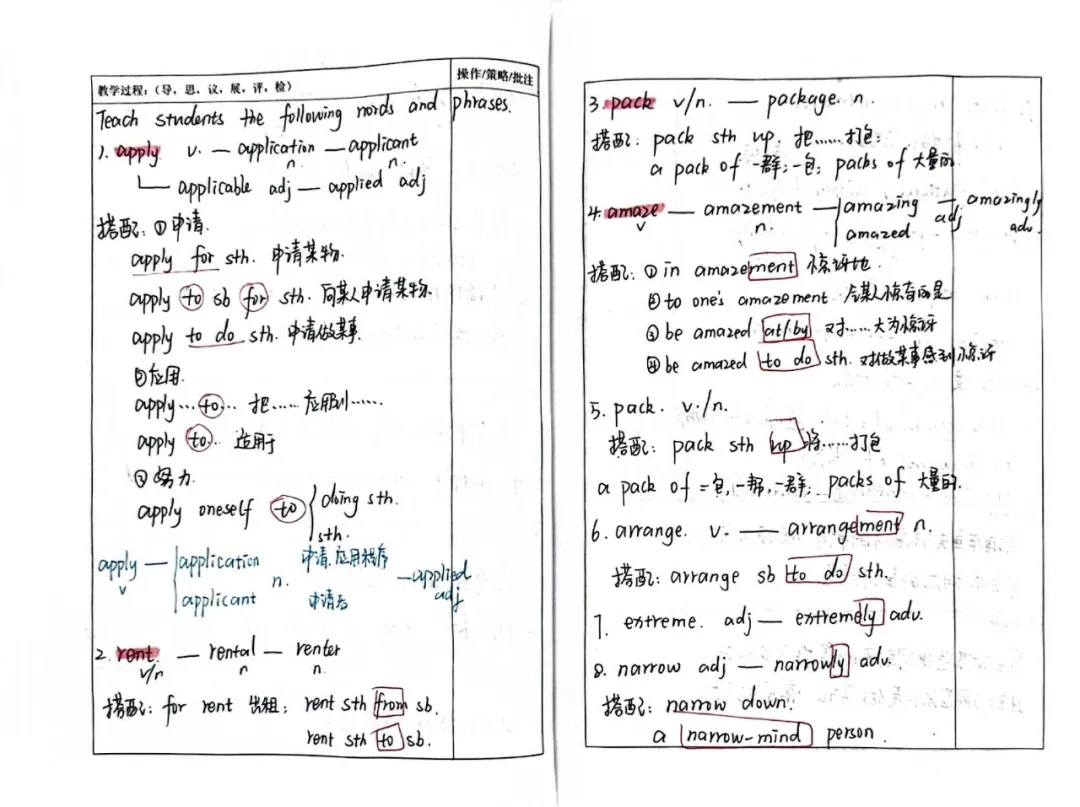 教学过程:(导,思,议,展,评,检)
操作/策略/批注
Teach students the following words and phrases.
1. apply v. — application — applicant
n. n.
applicable adj — applied adj
搭配: ①申请.
apply for sth. 申请某物.
apply to sb for sth. 向某人申请某物.
apply to do sth. 申请做某事.
②应用.
apply…to… 把……应用到……
apply to 适用于
③努力.
apply oneself to { doing sth.
sth.
apply — { application n. 申请.应用程序 — applied
v applicant 申请者 adj
2. rent — rental — renter
v/n n n.
搭配: for rent 出租; rent sth from sb.
rent sth to sb.
3. pack v/n. — package n.
搭配: pack sth up 把……打包;
a pack of 一群;一包; packs of 大量的
4. amaze — amazement — { amazing adj — amazingly
v n. amazed adv.
搭配: ① in amazement 惊讶地
② to one's amazement 令某人惊奇的是
③ be amazed at/by 对……大为惊讶
④ be amazed to do sth. 对做某事感到惊讶
5. pack. v./n.
搭配: pack sth up 将……打包
a pack of 一包,一帮,一群; packs of 大量的.
6. arrange. v. — arrangement n.
搭配: arrange sb to do sth.
7. extreme. adj — extremely adv.
8. narrow adj — narrowly adv.
搭配: narrow down.
a narrow-mind person.